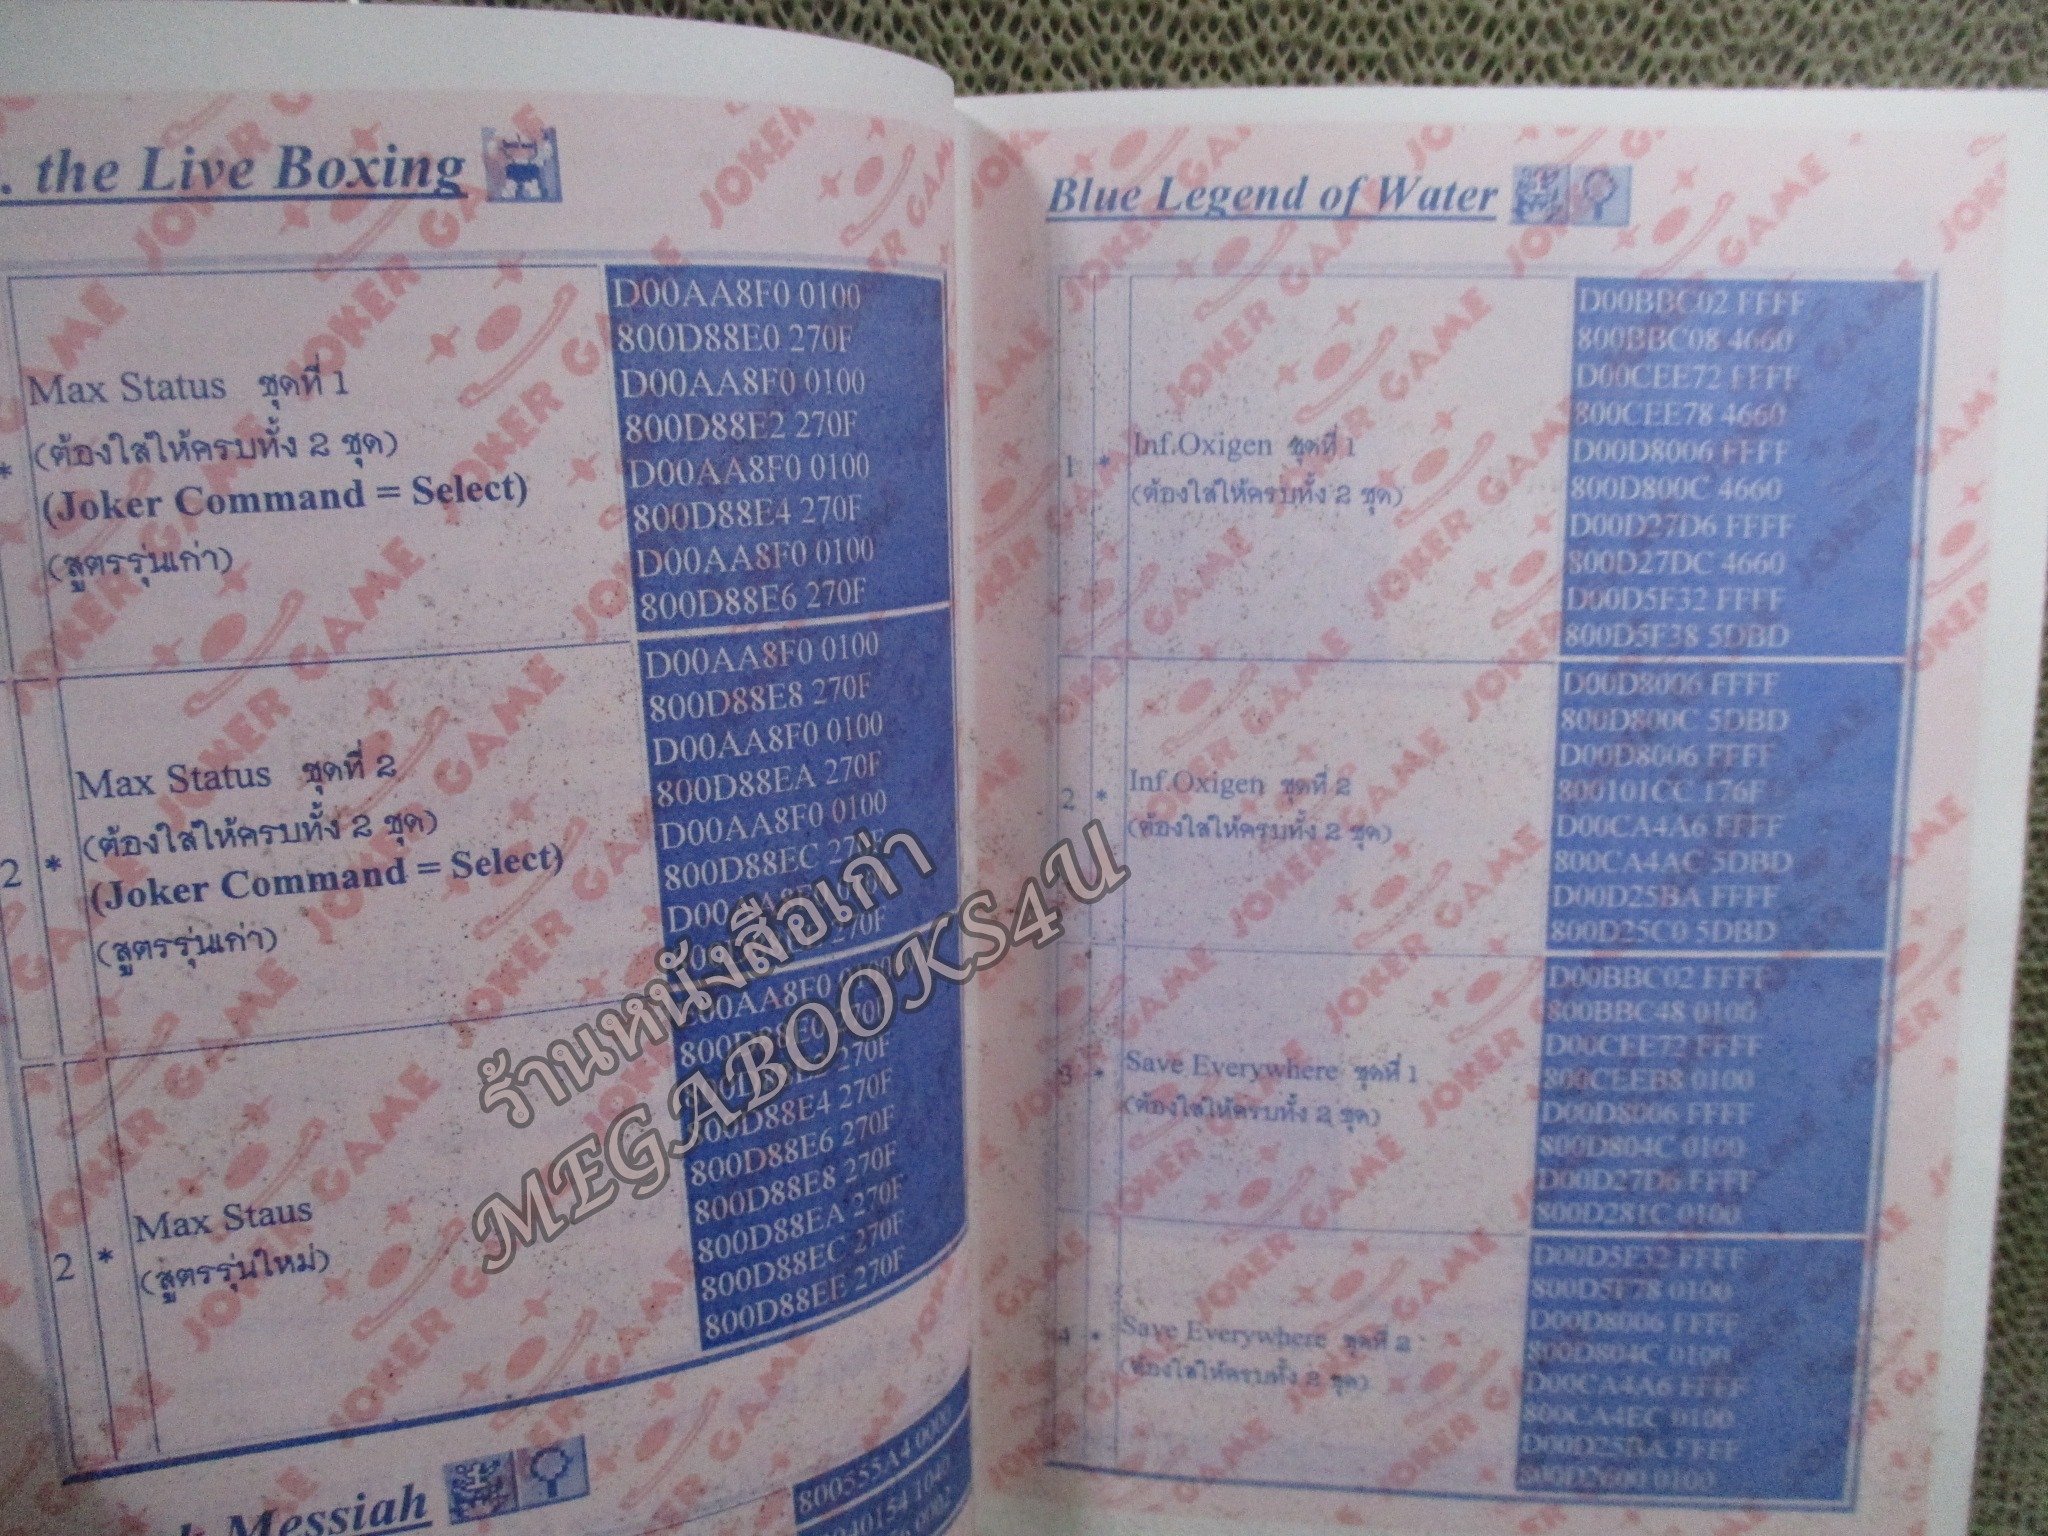 . the Live Boxing
*
Max Status ชุดที่ 1
(ต้องใส่ให้ครบทั้ง 2 ชุด)
(Joker Command = Select)
(สูตรรุ่นเก่า)
D00AA8F0 0100
800D88E0 270F
D00AA8F0 0100
800D88E2 270F
D00AA8F0 0100
800D88E4 270F
D00AA8F0 0100
800D88E6 270F
2 *
Max Status ชุดที่ 2
(ต้องใส่ให้ครบทั้ง 2 ชุด)
(Joker Command = Select)
(สูตรรุ่นเก่า)
D00AA8F0 0100
800D88E8 270F
D00AA8F0 0100
800D88EA 270F
D00AA8F0 0100
800D88EC 270F
270F
2 *
Max Staus
(สูตรรุ่นใหม่)
800D88E4 270F
800D88E6 270F
800D88E8 270F
800D88EA 270F
800D88EC 270F
800D88EE 270F
Messiah
800555A4 0000
Blue Legend of Water
1 *
Inf.Oxigen ชุดที่ 1
(ต้องใส่ให้ครบทั้ง 2 ชุด)
D00BBC02 FFFF
800BBC08 4660
D00CEE72 FFFF
800CEE78 4660
D00D8006 FFFF
800D800C 4660
D00D27D6 FFFF
800D27DC 4660
D00D5F32 FFFF
800D5F38 5DBD
2 *
Inf.Oxigen ชุดที่ 2
(ต้องใส่ให้ครบทั้ง 2 ชุด)
D00D8006 FFFF
800D800C 5DBD
D00D8006 FFFF
800101CC 176F
D00CA4A6 FFFF
800CA4AC 5DBD
D00D25BA FFFF
800D25C0 5DBD
3 *
Save Everywhere ชุดที่ 1
(ต้องใส่ให้ครบทั้ง 2 ชุด)
D00BBC02 FFFF
800BBC48 0100
D00CEE72 FFFF
800CEEB8 0100
D00D8006 FFFF
800D804C 0100
D00D27D6 FFFF
800D281C 0100
4 *
Save Everywhere ชุดที่ 2
(ต้องใส่ให้ครบทั้ง 2 ชุด)
D00D5F32 FFFF
800D5F78 0100
D00D8006 FFFF
800D804C 0100
D00CA4A6 FFFF
800CA4EC 0100
D00D25BA FFFF
800D2600 0100
ร้านหนังสือเก่า
MEGABOOKS4U